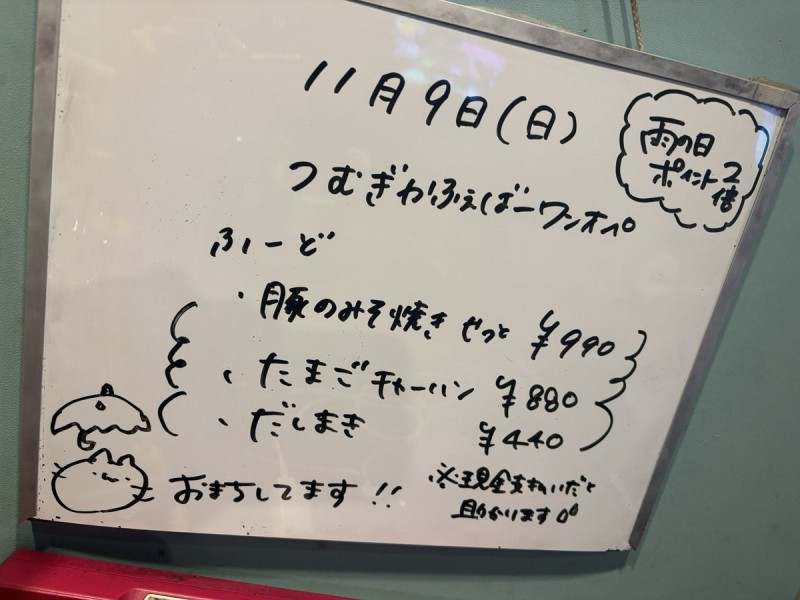 11月9日(日)
雨の日
ポイント2
倍
つむぎカふぇばーワンオペ
ふーど
・豚のみそ焼き せっと ¥990
・たまごチャーハン ¥880
・だしまき ¥440
おまちしてます!!
※現金支払いだと
助かります